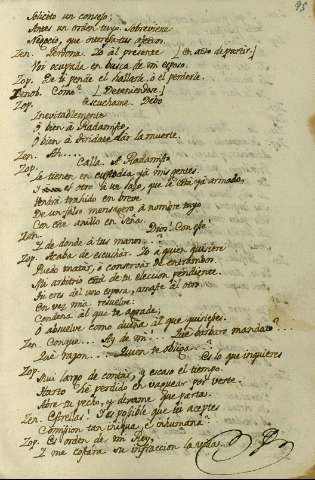 95
Solicito un consejo;
Antes un orden tuyo. Sobreviene
Negocio, que interesa tus afectos.
Zen. Perdona. Yo al presente [En acto de partir.]
Voi ocupada en busca de mi esposo.
Zop. De ti pende el hallarle, ò el perderle.
Zenob. Còmo? [Deteniendose.]
Zop. Escuchame. Debo
Inevitablemente
O bien à Radamisto,
O bien à Tiridate dàr la muerte.
Zen. Ah...
Zop. Calla. A Radamisto
Le tienen en custodia yà mis gentes.
I el otro à un lazo, que le està yà armado,
Vendrà trahido en breve
De un falso mensagero à nombre tuyo
Con este anillo en seña.
Zen. Dios! Con esse!
I de donde à tus manos...
Zop. Acaba de escuchar. Yo à quien quisiere
Puedo matar, ò conservar de entrambos.
Mi arbitrio està de tu eleccion pendiente.
Tu eres del uno esposa, amaste al otro.
En vez mia resuelve:
Condena al que te agrada;
O absuelve como dueña al que quisieres.
Zen. Conque... Ay de mi! Què barbaro mandato?...
Què razon... Quien te obliga?...
Zop. Es lo que inquieres
Mui largo de contàr, y escaso el tiempo.
Harto hè perdido en vaguear por verte.
Abre tu pecho, y dexame que parta.
Zen. Estrellas! I es posible que tù aceptes
Comision tan iniqua, è inhumana?
Zop. Es orden de mi Rey,
I me costàra su infraccion la vida.